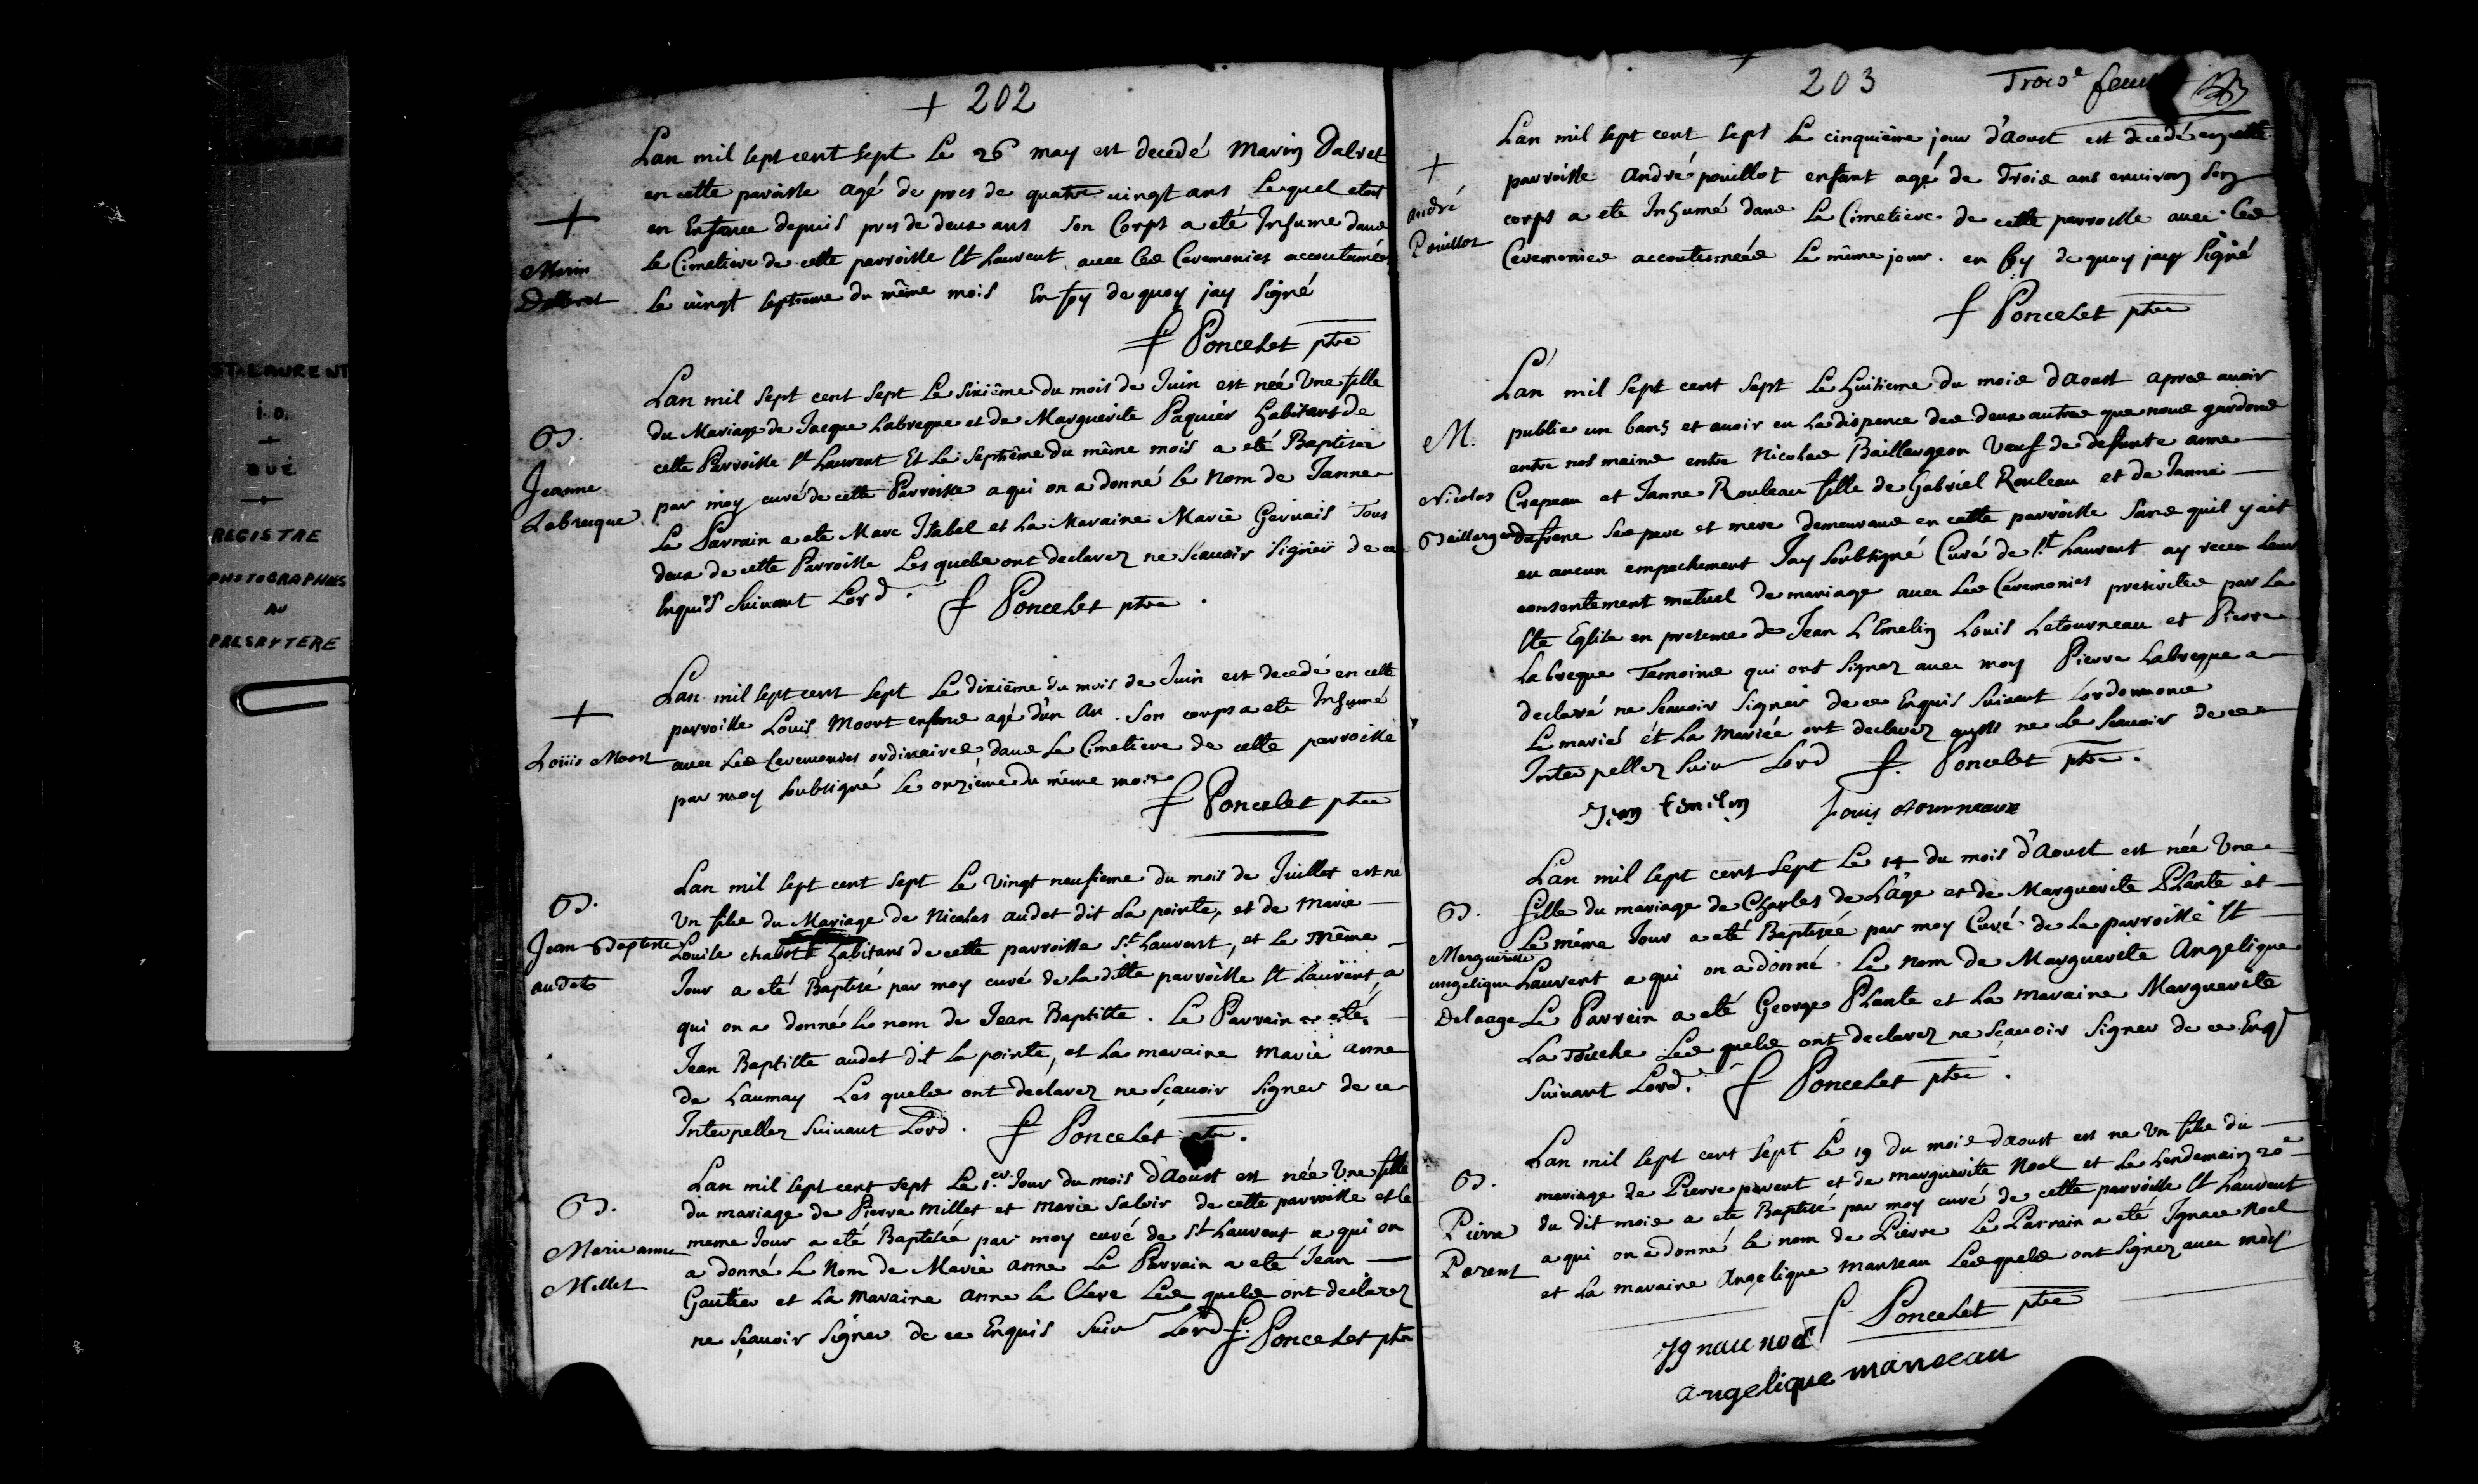 ST-LAURENT
i.o.
QUÉ
REGISTRE
PHOTOGRAPHIÉS
AU
PRESBYTERE
+ 202
Lan mil sept cent sept le 26 may est decedé marin Dalret
en cette paroisse agé de pres de quatre vingt ans Lequel etoit
en Enfance depuis pres de deux ans Son Corps a eté Inhume dans
le Cimetiere de cette parroisse St Laurent avec les Ceremonies accoutumées
le vingt septieme du même mois En foy de quoy jay signé
+
Marin
f Poncelet ptre
Lan mil sept cent sept Le sixiême du mois de Juin est née Une fille
du Mariage de Jacque Labreque et de Marguerite Paquier habitans de
cette Parroisse St Laurent Et Le Septiême du même mois a eté Baptisée
par moy curé de cette Parroisse a qui on a donné Le Nom de Janne
Le Parrain a ete Marc Isabel et La Maraine Marie Gervais Tous
deux de cette Parroisse Les quels ont declarez ne Scauoir Signer de ce
Enquis Suivant Lord. f Poncelet ptre.
B.
Jeanne
Labrecque
Lan mil sept cent sept Le dixiême du mois de Juin est decedé en cette
parroisse Louis Moort enfans agé d'un An. Son corps a ete Inhumé
avec Les Ceremonies ordinaires dans Le Cimetiere de cette parroisse
par moy soubsigné Le onziême du même mois
f Poncelet ptre
+
Loüis Moort
Lan mil sept cent sept Le Vingt neufieme du mois de Juillet est né
Un fils du Mariage de Nicolas audet dit La pointe, et de Marie
Louise chabott habitans de cette parroisse St Laurent, et le même
Jour a eté Baptisé par moy curé de La ditte parroisse St Laurent, a
qui on a donné le nom de Jean Baptiste. Le Parrain a eté
Jean Baptiste audet dit la pointe, et La maraine marie anne
de Launay Les quels ont declarez ne Sçauoir Signer de ce
Interpellez Suivant Lord. f Poncelet ptre.
B.
Jean Baptiste
audet
Lan mil sept cent sept Le 1er Jour du mois d'Aoust est née Une fille
du mariage de Pierre Millet et Marie Saloir de cette parroisse et le
meme Jour a eté Baptisée par moy curé de St Laurent a qui on
a donné Le Nom de Marie anne Le Parrain a eté Jean
Gautier et La Maraine anne Le Clere Les quels ont declarez
ne sçauoir Signer de ce Enquis Suiv Lord f. Poncelet ptr
B.
Marie anne
Millet
203
Trois.e
Lan mil sept cent sept Le cinquième jour d'Aoust est decedé en cette
parroisse André pouillot enfant agé de Trois ans environ Son
corps a ete Inhumé dans Le Cimetiere de cette parroisse avec les
Ceremonies accoutumées Le même jour. en foy de quoy jay Signé
f Poncelet ptre
+
andré
Pouillot
L'an mil sept cent sept Le huitieme du mois d'Aoust apres avoir
publie un bans et avoir eu La dispence des deux autres que nous gardons
entre nos mains entre Nicolas Baillargeon Veuf de defunte anne
Crepeau et Janne Rouleau fille de Gabriel Rouleau et de Janne
dufrene ses pere et mere demeurans en cette parroisse Sans quil y ait
eu aucun empechement Jay Soubsigné Curé de St Laurent ay receu Leur
consentement mutuel de mariage avec Les Ceremonies prescrites par La
Ste Eglise en presence de Jean L'Emelin Louis Letourneau et Pierre
Labreque Temoins qui ont Signez avec moy Pierre Labreque a
declaré ne Scauoir Signer de ce Enquis Suivant Lordonnance
Le marié et La Mariée ont declarez aussi ne Le Scauoir de ce
Interpellez Suiv Lord f. Poncelet ptre.
Jean Lemelin Louis
M.
Nicolas
Baillargeon
Lan mil sept cent sept Le 14 du mois d'Aoust est née Une
fille du mariage de Charles de Lâge et de Marguerite Plante et
Le même Jour a eté Baptisée par moy Curé de La parroisse St
Laurent a qui on a donné Le Nom de Marguerite Angelique
Le Parrein a eté George Plante et La maraine Marguerite
La Touche Les quels ont declarez ne Scauoir Signer de ce Enqs
Suivant Lord. f Poncelet ptre.
B.
Marguerite
angelique
Delaage
Lan mil sept cent sept Le 19 du mois d'Aoust est ne Un fils du
mariage de Pierre parent et de marguerite Noel et Le Lendemain 20e
du dit mois a ete Baptisé par moy curé de cette parroisse St Laurent
a qui on a donné le nom de Pierre Le Parrain a eté Ignace Noel
et La maraine Angelique Manseau Les quels ont Signez avec moy
f Poncelet ptre
Ignace noel
angelique manseau
B.
Pierre
Parent